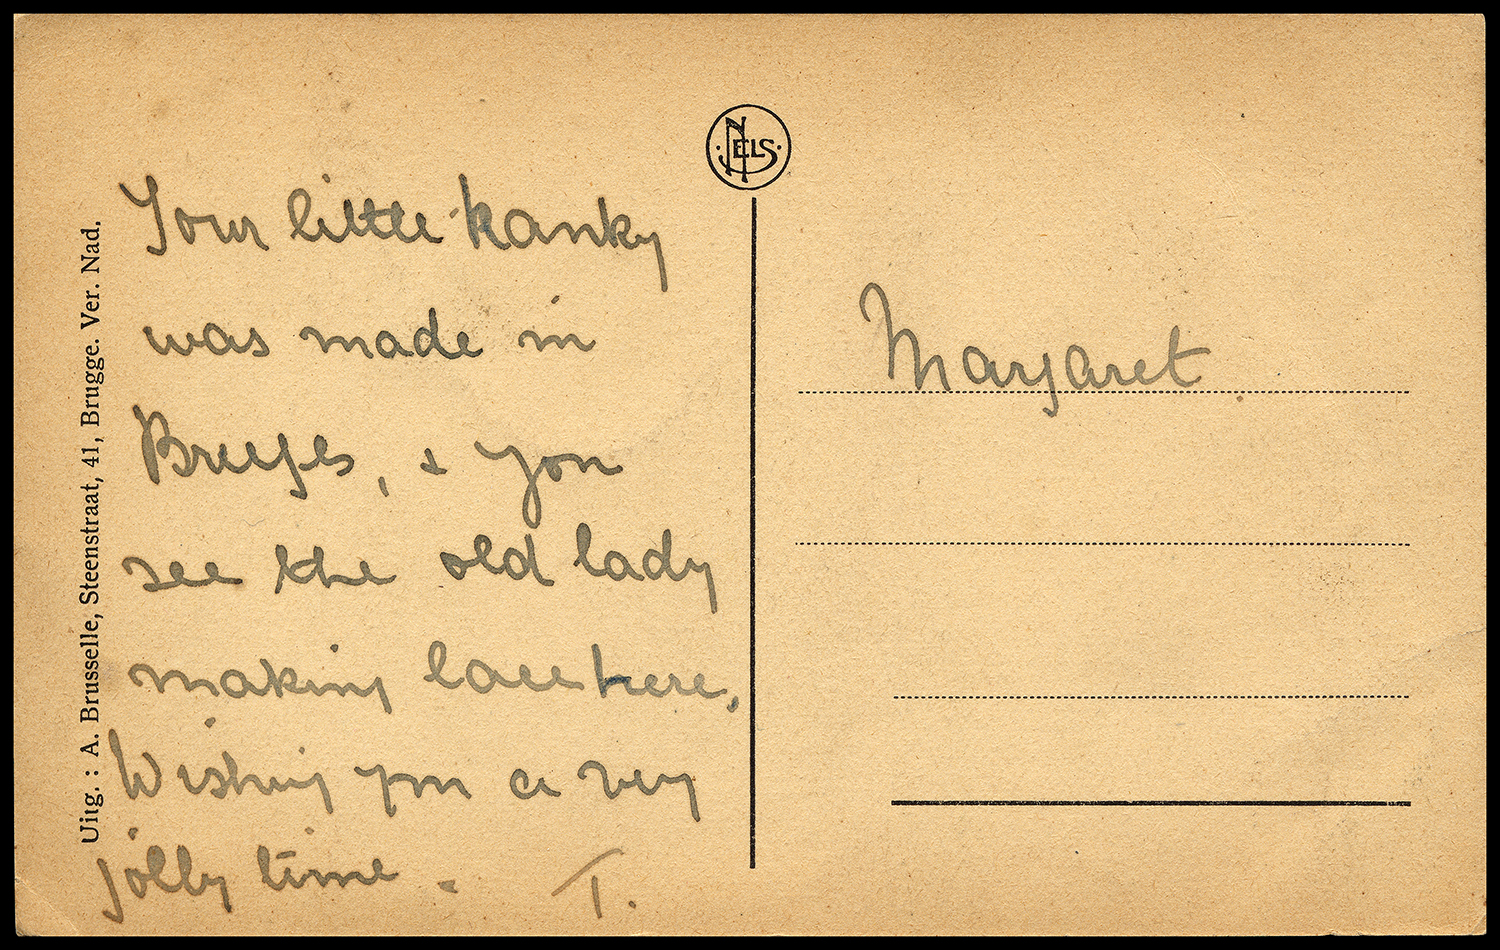 NELS
Your little hanky
was made in
Bruges, & you
see the old lady
making lace here.
Wishing you a very
jolly time. T.
Margaret
Uitg. : A. Brusselle, Steenstraat, 41, Brugge. Ver. Nad.